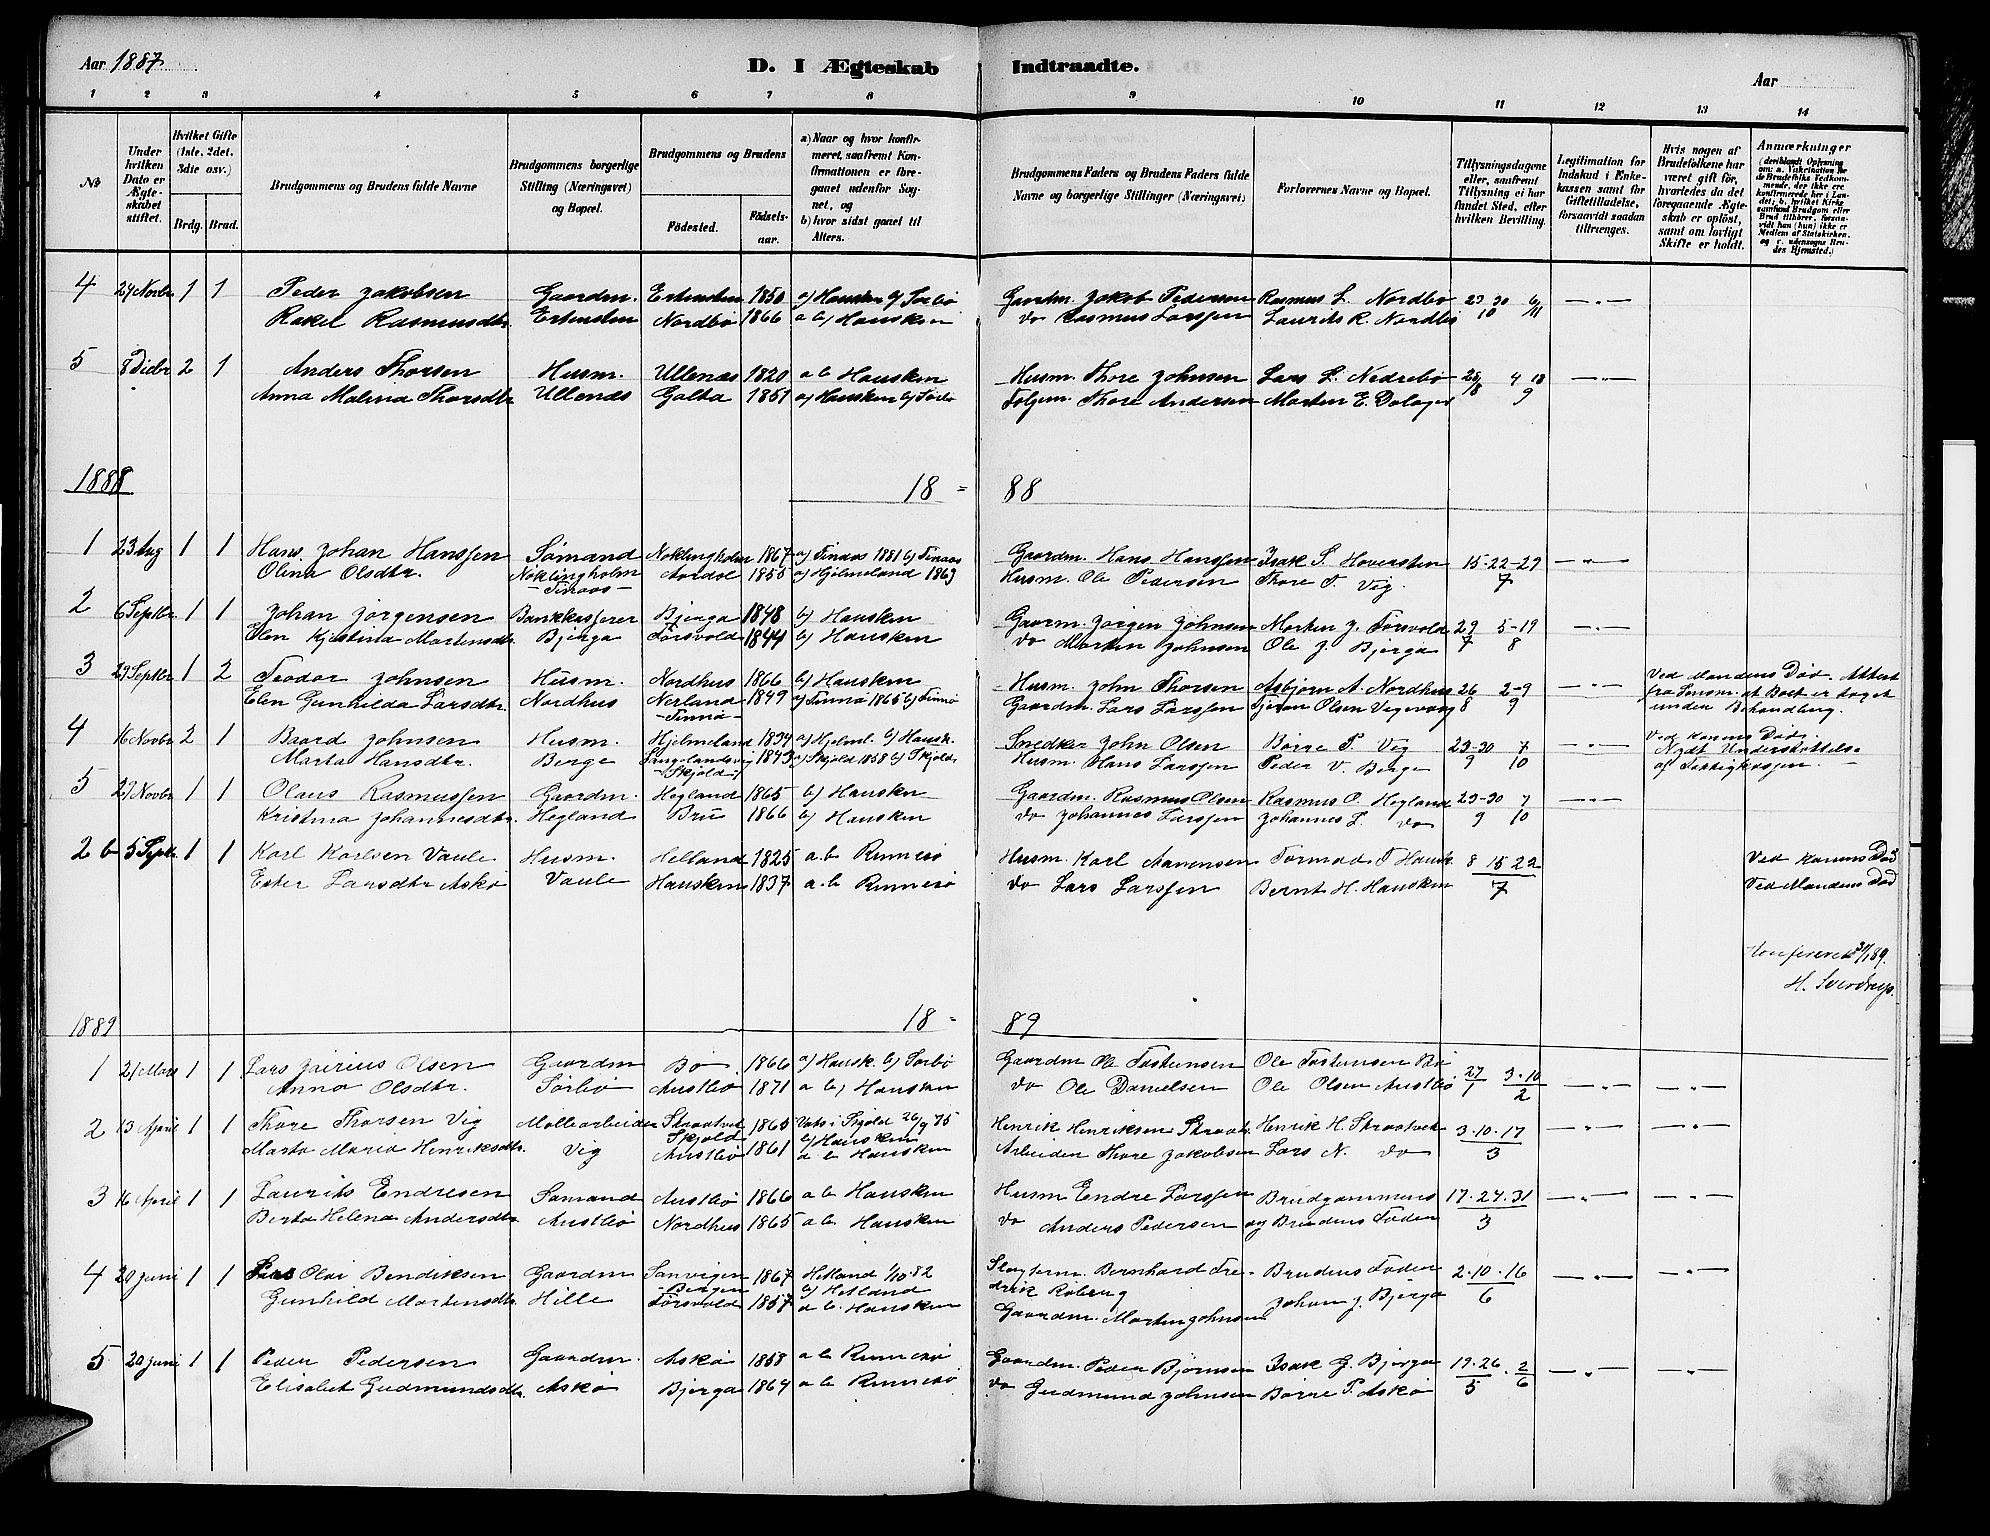 Aar 1887
D. I Ægteskab Indtraadte.
Aar
1 2 3 4 5 6 7 8 9 10 11 12 13 14
No
Under hvilken Dato er Ægteskabet stiftet.
Hvilket Gifte (1ste, 2det, 3die osv.)
Brdg. Brud.
Brudgommens og Brudens fulde Navne
Brudgommens borgerlige Stilling (Næringsvei) og Bopæl.
Brudgommens og Brudens
Födested. Födselsaar.
a) Naar og hvor konfirmeret, saafremt Konfirmationen er foregaaet udenfor Sognet, og
b) hvor sidst gaaet til Alters.
Brudgommens Faders og Brudens Faders fulde Navne og borgerlige Stillinger (Næringsvei)
Forlovernes Navne og Bopæl.
Tillysningsdagene eller, saafremt Tillysning ei har fundet Sted, efter hvilken Bevilling.
Legitimation for Indskud i Enkekassen samt for Giftetilladelse, forsaavidt saadan tiltrænges.
Hvis nogen af Brudefolkene har været gift för, hvorledes da det foregaaende Ægteskab er oplöst, samt om lovligt Skifte er holdt.
Anmærkninger
4 24 Novbr 1 1 Peder Jakobsen Gaardm. Ertensten 1850 a) Hausken b) Sørbø Gaardm. Jakob Pedersen Rasmus L. Nordbø 23 30 6/11 — " —
Rakel Rasmusdtr. Ertensten Nordbø 1866 a b) Hausken do Rasmus Larssen Laurits R. Nordbø 10
5 8 Decbr 2 1 Anders Thorsen Husm. Ullenæs 1820 a b Hausken Husm. Thore Johnsen Lars L. Nedrebø 28/8 4 18 — " —
Anna Malena Thorsdtr. Ullenæs Galta 1851 a) Hausken b) Sørbø Folgem. Thore Andersen Morten E. 9
1888 18 = 88
1 23 Aug 1 1 Hans Johan Hanssen Sømand Noklingholm 1867 a) Finnøs 1881 b) Gaardm. Hans Hanssen Isak S. Hoversten 15-22-29 — " —
Olina Olsdtr. Nøklingholm 1855 a) Hjelmeland 1869 Husm. Ole Pedersen Thore T. Vig. 7
2 6 Septbr 1 1 Johan Jørgensen Bankkasserer Bjerga 1848 b) Hausken Gaardm. Jørgen Johnsen Morten J. Førsvold 29 5-19 — " —
Elen Kjestina Martensdtr Bjerga Førsvold 1844 b) Hausken do Morten Johnsen Ole J. Bjerga 7 8
3 27 Septbr 1 2 Teodor Johnsen Husm. Nordhus 1866 b) Hausken Husm. John Thorsen Asbjørn A. Nordhus 26 2-9 — " — Ved Mandens Död. Attest
Elen Gunhilda Larsdtr. Nordhus Nerland 1849 a) Finnø 1865 b) Finnø Gaardm. Lars Larssen Olsen 8 9 fra Lensm. at Boet er taget
—Finnø— under Behandling.
4 16 Novbr 2 1 Baard Johnsen Husm. Hjelmeland 1834 a) Hjelml. b) Hausk. Snedker John Olsen Børre P. Vig 23-30 7 — " — Ved Konens Död.
Marta Hansdtr. Berge 1843 a) Skjold 1858 b) Skjold Husm. Hans Larssen Peder V. Berge 9 10 Nydt Understøttelse
—Skjold— af Fattigkassen. —
5 27 Novbr 1 1 Olaus Rasmussen Gaardm. Hegland 1865 b) Hausken Gaardm. Rasmus Olsen Rasmus O. Hegland 23-30 7 — " —
Kristina Johannesdtr. Hegland Bru 1866 b) Hausken do Johannes Larssen Johannes L. do 9 10
2 b 5 Septbr 1 1 Karl Karlsen Vaule Husm. Helland 1825 a.b Rennesø Husm. Karl Tormod T Hausk. 8 15 22 Ved Konens Död
Ester Larsdtr Askø Vaule Hausken 1837 a.b Rennesø do Lars Larssen Bernt H. Hausken 7 Ved Mandens Död
Konfereret 31/1 89.
H. Sverdrup.
1889 18 = 89
1 21 Mars 1 1 Lars Jairius Olsen Gaardm Bø 1866 a) Hausk. b) Sørbø Gaardm Ole Tostensen Ole Tostensen Bø 27 3-10 — " — — " —
Anna Olsdtr. Sørbø Austbø 1871 a b) Hausken do Ole Danielsen Ole Olsen Austbø 1 2
2 13 April 1 1 Thore Thorsen Vig Møllearbeider Straatvet 1865 Vats i Skjold 26/9 75 Henrik Henriksen Straatv. Henrik H. Straatveit 3-10-17 — " — — " —
Skjold b) Hausken
Marta Maria Henriksdtr. Vig Austbø 1861 a b Hausken Arbeider Thore Jakobsen Lars N. do 3
3 16 April 1 1 Laurits Endresen Sømand Austbø 1866 a b Hausken Husm Endre Larssen Brudgommens 17-24-31 — " — — " —
Berta Helena Andersdtr Austbø Nordhus 1865 a b. Hausken do Anders Pedersen og Brudens Fader 3
4 20 Juni 1 1 Olai Bendiksen Gaardm Sanvigen 1867 Hetland 1/10 82 Bernhard Fre- Brudens Fader 2-10-16 — " — — " —
—Bergen b) Hetland drik
Gunhild Martensdtr. Hille Førsvold 1857 a b. Hausken Gaardm. Morten Johnsen Johan J. Bjerga 6
5 20 Juni 1 1 Peder Pedersen Gaardm. Askø 1858 a b Rennesø Gaardm. Peder Bjørnsen Isak G. Bjerga 19-26 2/6 — " — — " —
Elisabet Gudmundsdtr. Askø Bjerga 1864 a b Rennesø do Gudmund Johnsen Børre P. Askø 5